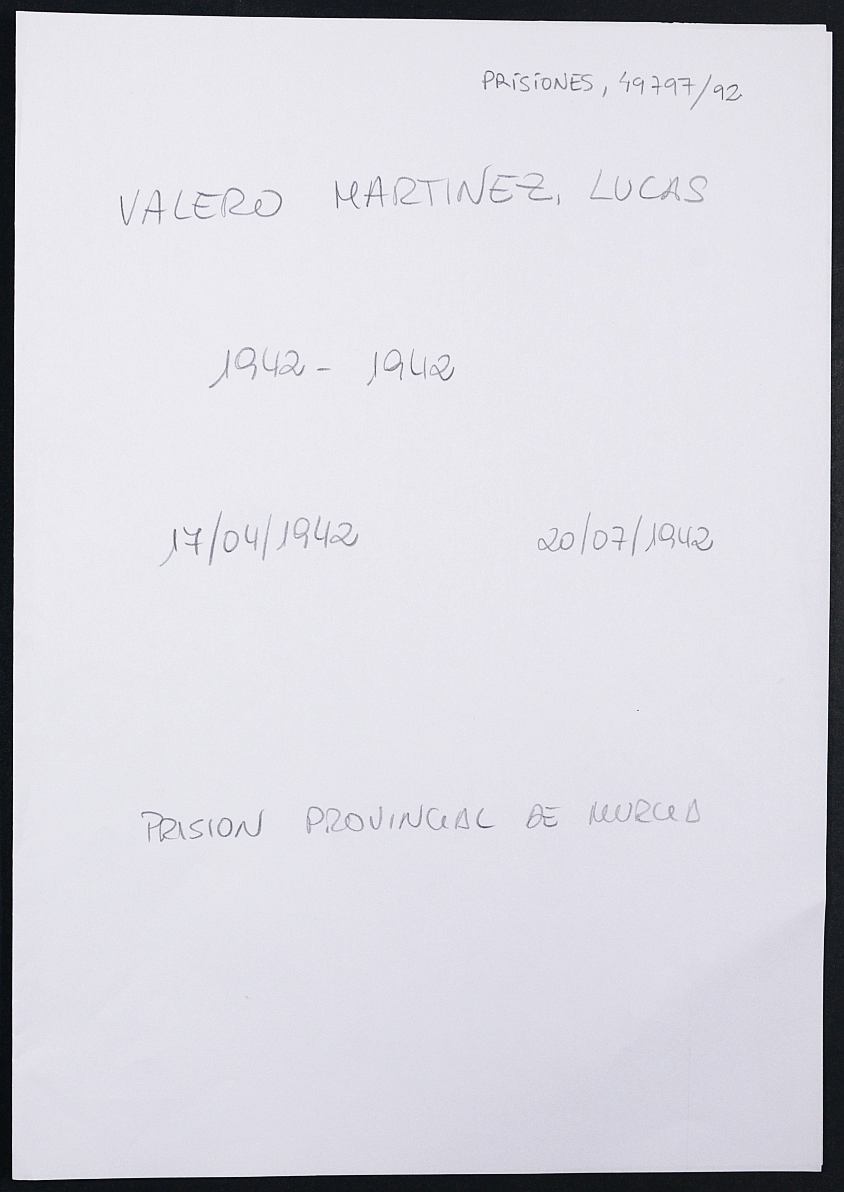 PRISIONES, 49797/92
VALERO MARTINEZ, LUCAS
1942 - 1942
17/04/1942 20/07/1942
PRISION PROVINCIAL DE MURCIA